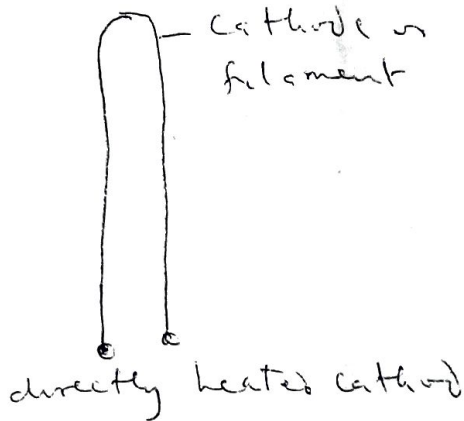 Cathode or
filament
directly heated cathod